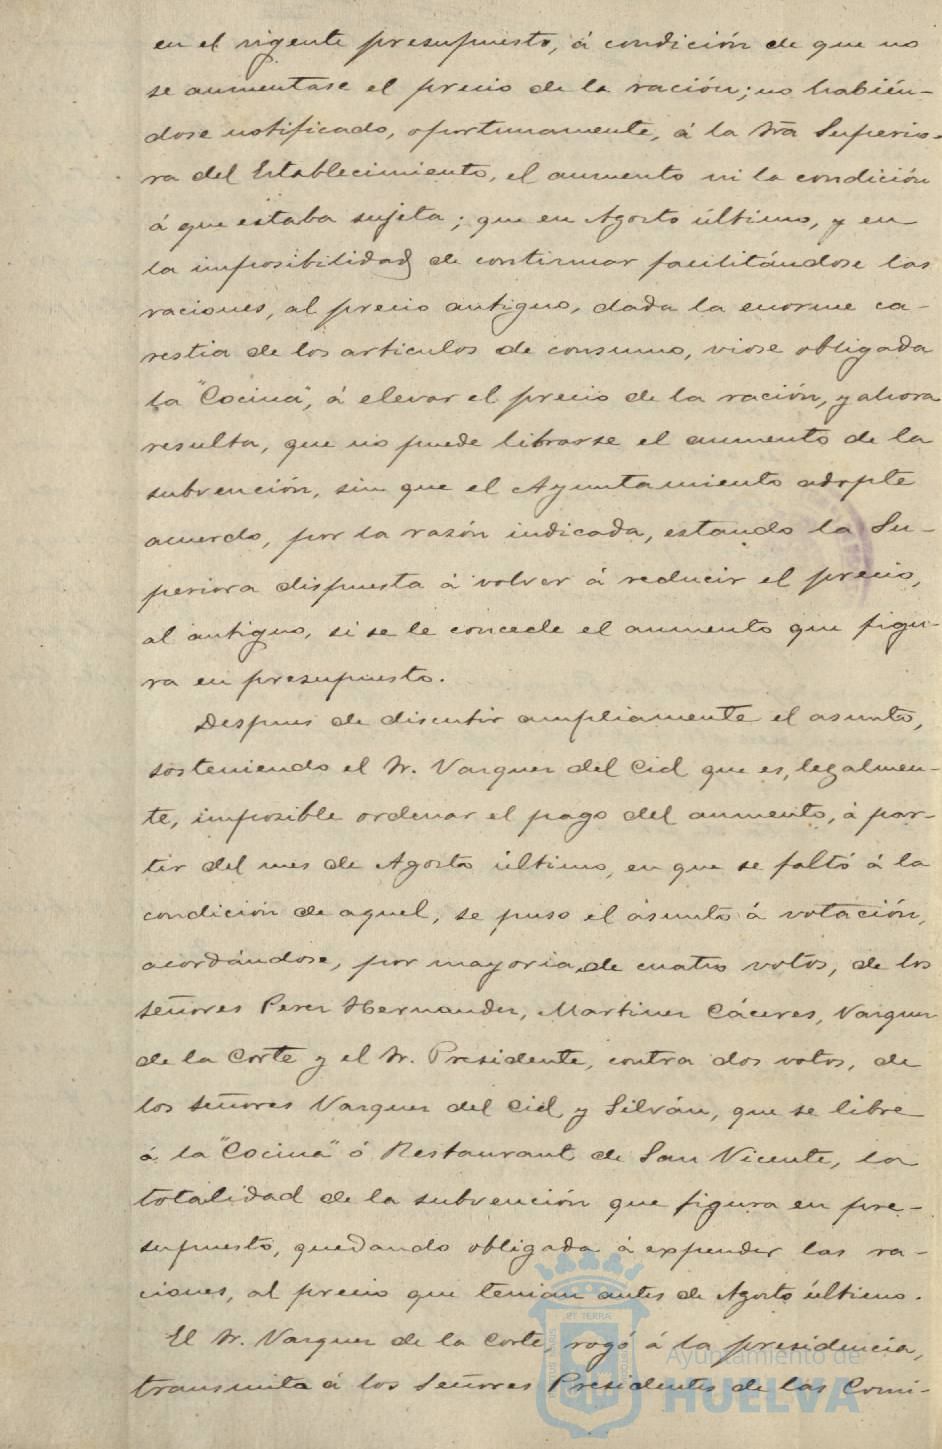 en el vigente presupuesto, á condición de que no
se aumentase el precio de la ración; no habién-
dose notificado, oportunamente, á la Sra Superio-
ra del Establecimiento, el aumento ni la condición
á que estaba sujeta; que en Agosto último, y en
la imposibilidad de continuar facilitándose las
raciones, al precio antiguo, dada la enorme ca-
restia de los articulos de consumo, viose obligada
la "Cocina", á elevar el precio de la ración, y ahora
resulta, que no puede librarse el aumento de la
subvención, sin que el Ayuntamiento adopte
acuerdo, por la razón indicada, estando la Su-
periora dispuesta á volver á reducir el precio,
al antiguo, si se le concede el aumento que figu-
ra en presupuesto.
Despues de discutir ampliamente el asunto,
sosteniendo el Sr. Vazquez del Cid que es, legalmen-
te, imposible ordenar el pago del aumento, á par-
tir del mes de Agosto último, en que se faltó á la
condición de aquel, se puso el asunto á votación,
acordándose, por mayoria, de cuatro votos, de los
señores Perez Hernandez, Martinez Cáceres, Vazquez
de la Corte y el Sr. Presidente, contra dos votos, de
los señores Vazquez del Cid y Silván, que se libre
á la "Cocina" ó Restaurant de San Vicente, la
totalidad de la subvención que figura en pre-
supuesto, quedando obligada á expender las ra-
ciones, al precio que tenian antes de Agosto último.
El Sr. Vazquez de la Corte, rogó á la presidencia,
transmita á los Señores Presidentes de las Comi-
ET TERRA
Ayuntamiento de
HUELVA